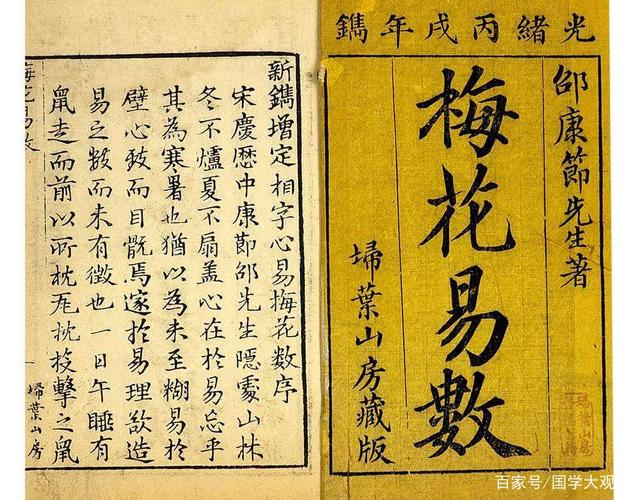 光緒丙戌年鐫
邵康節先生著
梅花易數
埽葉山房藏版
新鐫增定相字心易梅花數序
宋慶歷中康節邵先生隱處山林
冬不爐夏不扇蓋心在於易忘乎
其為寒暑也猶以為未至糊易於
壁心致而目翫焉邃於易理欲造
易之數而未有徵也一日午睡有
鼠走而前以所枕瓦枕投擊之鼠
埽葉山房
梅花易數
百家号/国学大观